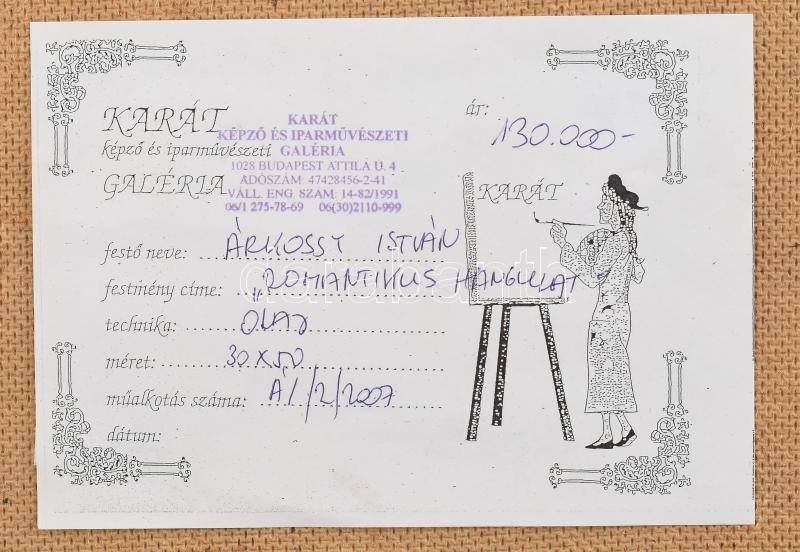 KARÁT
képző és iparművészeti
GALÉRIA
KARÁT
KÉPZŐ ÉS IPARMŰVÉSZETI
GALÉRIA
1028 BUDAPEST ATTILÁ Ú. 4
ADÓSZÁM: 47428456-2-41
VÁLL. ENG. SZÁM: 14-82/1991
06/1 275-78-69 06(30)2110-999
ár: 130.000-
KARÁT
festő neve: ÁRKOSSY ISTVÁN
festmény címe: „ROMANTIKUS HANGULAT"
technika: OLAJ
méret: 30x50
műalkotás száma: ÁI/2/2007
dátum: